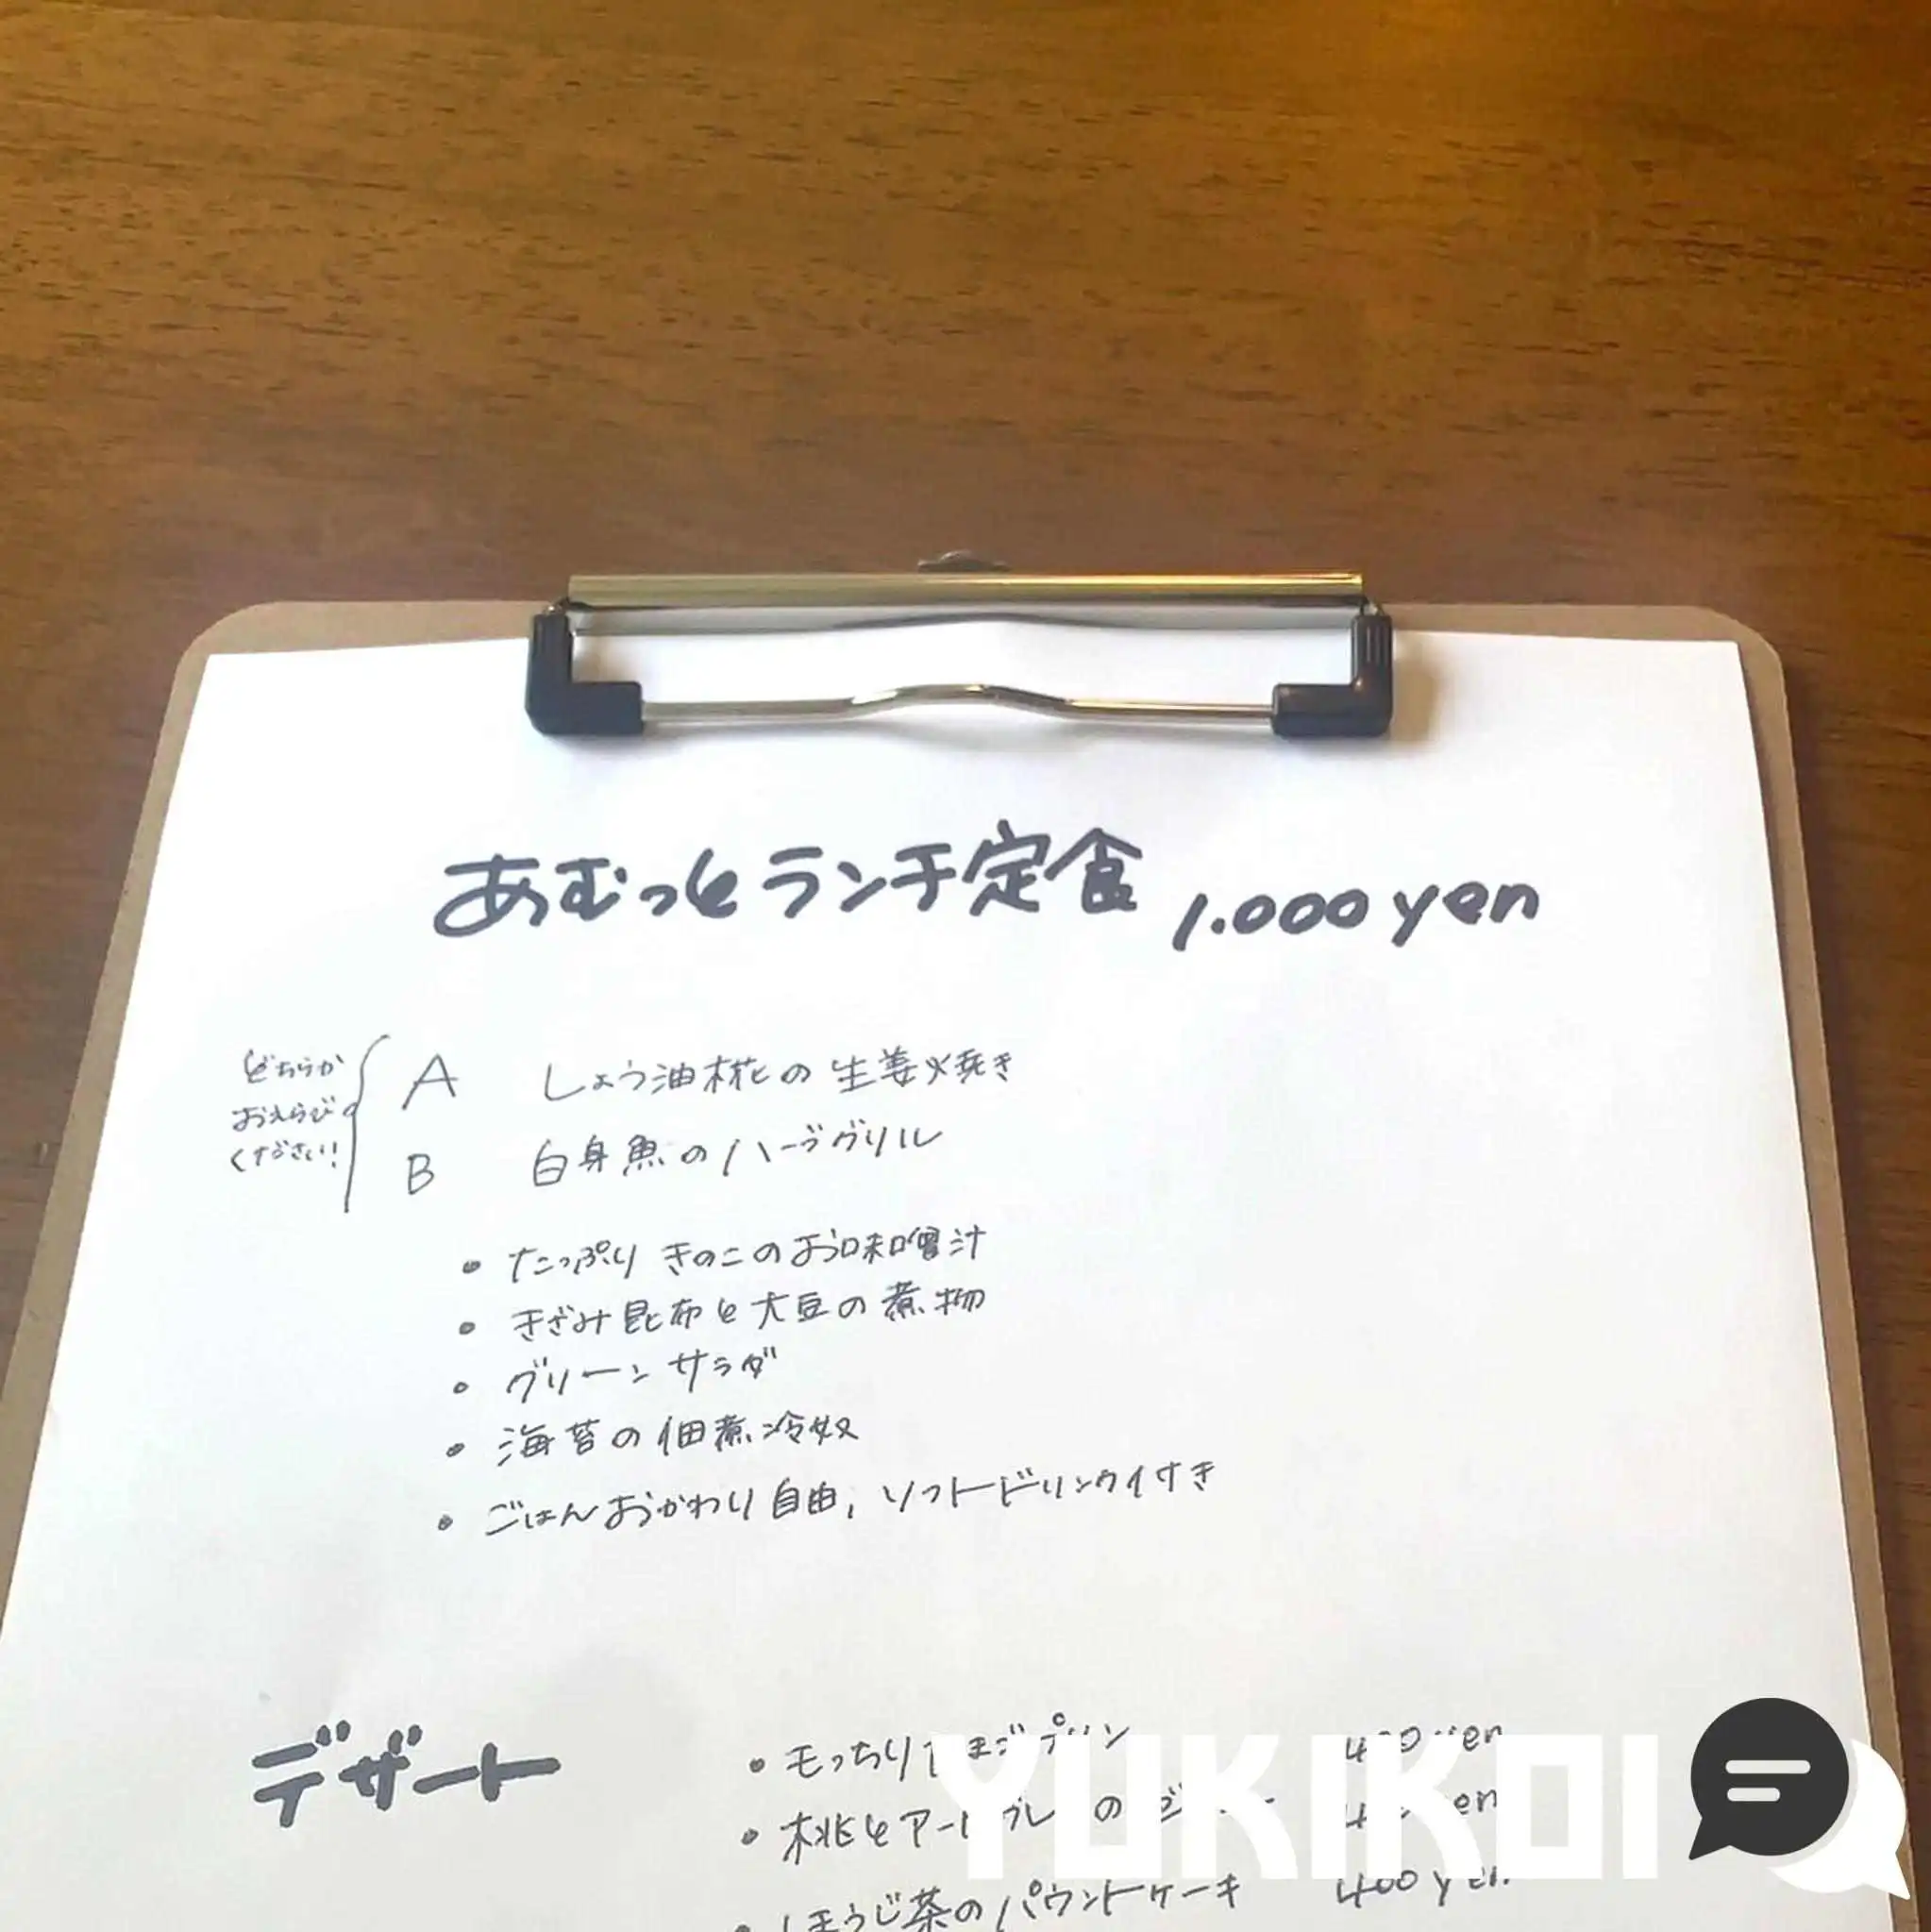 あむっとランチ定食 1.000 yen
どちらか
おえらび
ください!
A しょう油糀の生姜焼き
B 白身魚のハーブグリル
• たっぷりきのこのお味噌汁
• きざみ昆布と大豆の煮物
• グリーンサラダ
• 海苔の佃煮冷奴
• ごはんおかわり自由, ソフトドリンク付き
デザート
• もっちり プリン 400 yen
• 桃とアールグレ の
• ほうじ茶のパウンドケーキ 400 yen
YUKIKOI